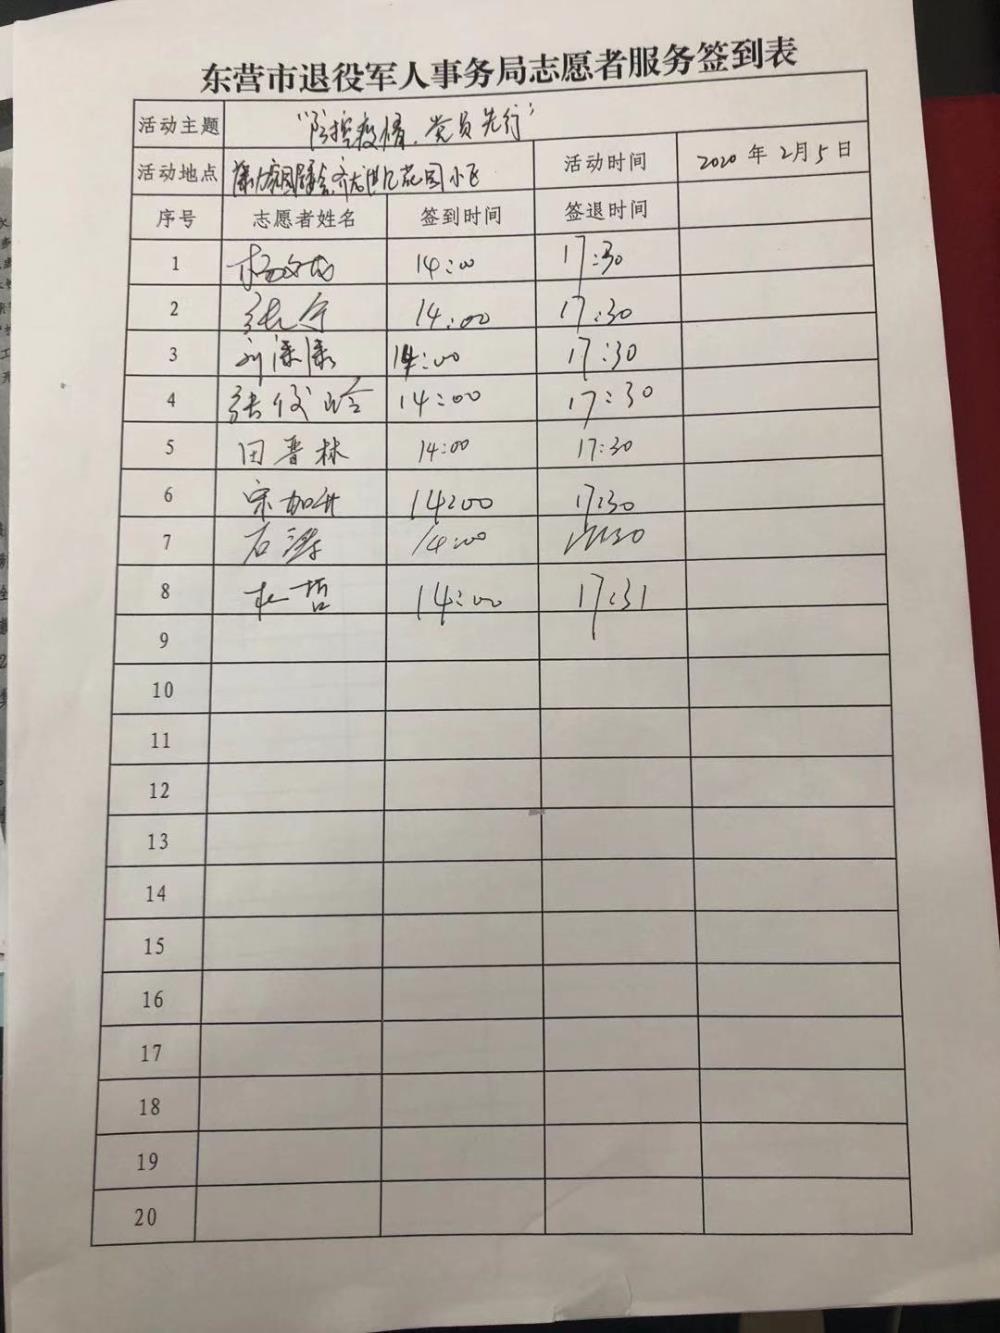 东营市退役军人事务局志愿者服务签到表
活动主题 "防控疫情、党员先行"
活动地点 花园小区 活动时间 2020年2月5日
序号 志愿者姓名 签到时间 签退时间
1 14:00 17:30
2 14:00 17:30
3 刘潆潆 14:00 17:30
4 张俊玲 14:00 17:30
5 田晋林 14:00 17:30
6 宋加升 14:00 17:30
7 石涛 14:00 17:30
8 杜哲 14:00 17:31
9
10
11
12
13
14
15
16
17
18
19
20